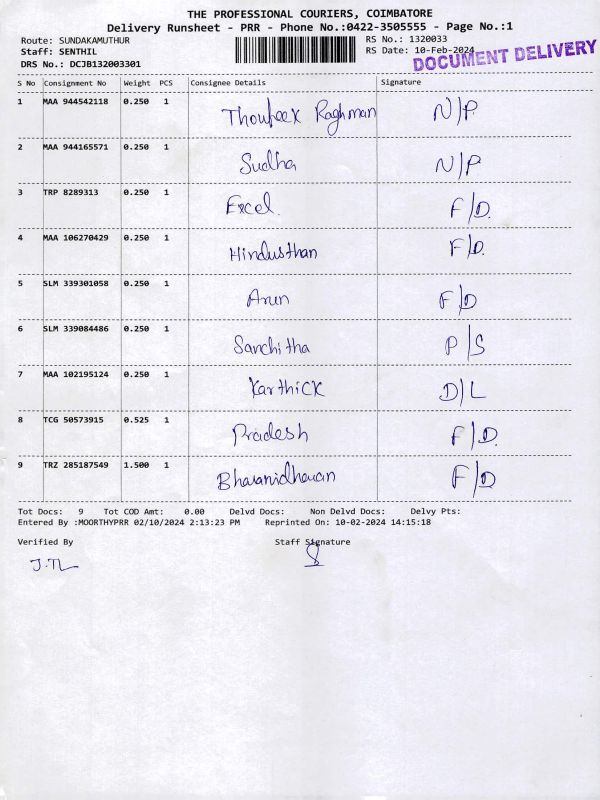 THE PROFESSIONAL COURIERS, COIMBATORE
Delivery Runsheet - PRR - Phone No.:0422-3505555 - Page No.:1
Route: SUNDAKAMUTHUR RS No.: 1320033
Staff: SENTHIL RS Date: 10-Feb-2024
DRS No.: DCJB132003301 DOCUMENT DELIVERY
S No Consignment No Weight PCS Consignee Details Signature
1 MAA 944542118 0.250 1 Thoufeex Raghman N/P
2 MAA 944165571 0.250 1 Sudha N/P
3 TRP 8289313 0.250 1 Excel. F/D.
4 MAA 106270429 0.250 1 Hindusthan F/D.
5 SLM 339301058 0.250 1 Arun F/D
6 SLM 339084486 0.250 1 Sanchitha P/S
7 MAA 102195124 0.250 1 KarthiCK D/L
8 TCG 50573915 0.525 1 Pradesh F/D.
9 TRZ 285187549 1.500 1 Bharanidharan F/D
Tot Docs: 9 Tot COD Amt: 0.00 Delvd Docs: Non Delvd Docs: Delvy Pts:
Entered By :MOORTHYPRR 02/10/2024 2:13:23 PM Reprinted On: 10-02-2024 14:15:18
Verified By Staff Signature